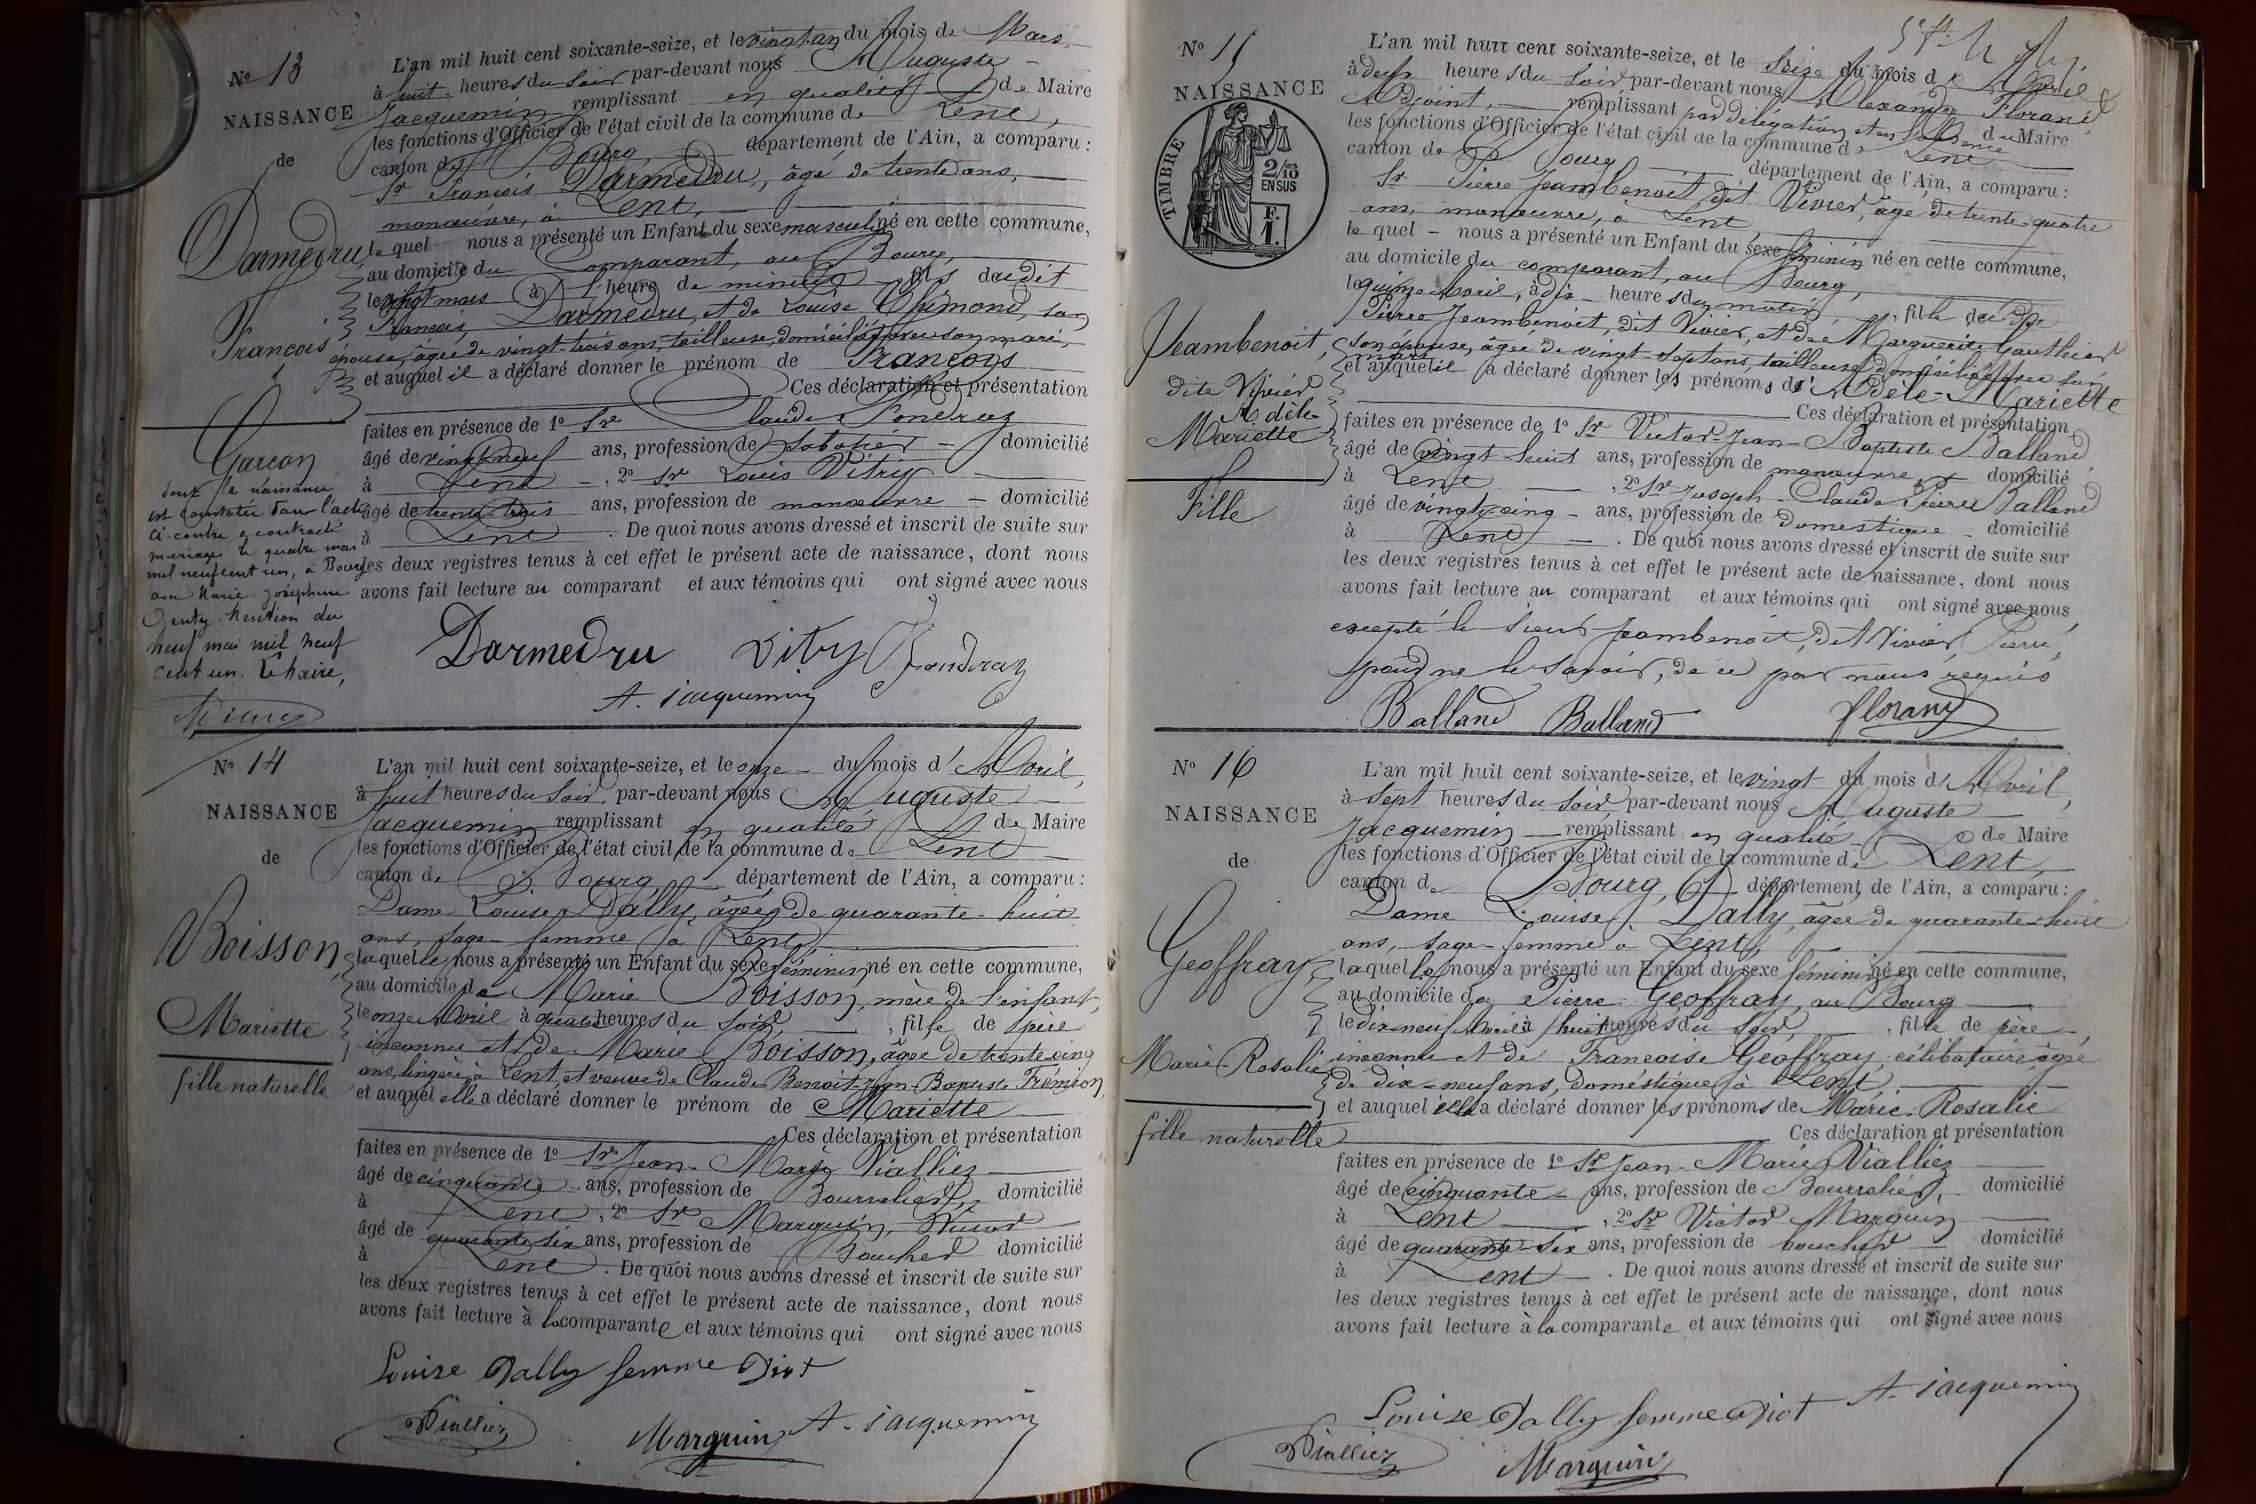 N° 13
NAISSANCE
de
Darmedru
François
Garçon
dont la naissance
est constatée dans l'acte
ci-contre a contracté
mariage le quatre mai
mil neuf cent un, à Bourg
avec Marie Joséphine
Genty. Mention du
neuf mai mil neuf
cent un. Le Maire,
L'an mil huit cent soixante-seize, et le vingt-un du mois de Mars,
à huit heures du soir par-devant nous Auguste
Jacquemin remplissant en qualité de Maire
les fonctions d'Officier de l'état civil de la commune de Lent,
canton de Bourg, département de l'Ain, a comparu :
Sr François Darmedru, âgé de trente ans,
manœuvre, à Lent,
lequel nous a présenté un Enfant du sexe masculin né en cette commune,
au domicile du Comparant, au Bourg,
le vingt mars à l'heure de minuit fils dudit
François Darmedru, et de Louise son
épouse, âgée de vingt-trois ans, tailleuse, domiciliée avec son mari,
et auquel il a déclaré donner le prénom de François
Ces déclaration et présentation
faites en présence de 1° Sr Claude Fondraz
âgé de vingt-neuf ans, profession de Sabotier domicilié
à Lent, 2° Sr Louis Vitry
âgé de trente-trois ans, profession de manœuvre domicilié
à Lent. De quoi nous avons dressé et inscrit de suite sur
les deux registres tenus à cet effet le présent acte de naissance, dont nous
avons fait lecture au comparant et aux témoins qui ont signé avec nous
Darmedru Vitry Fondraz
A. Jacquemin
N° 14
NAISSANCE
de
Boisson
Mariette
fille naturelle
L'an mil huit cent soixante-seize, et le onze du mois d'Avril,
à huit heures du Soir, par-devant nous Auguste
Jacquemin remplissant en qualité de Maire
les fonctions d'Officier de l'état civil de la commune de Lent
canton de Bourg, département de l'Ain, a comparu :
Dame Louise Dally, âgée de quarante-huit
ans, sage-femme à Lent,
laquelle nous a présenté un Enfant du sexe féminin, né en cette commune,
au domicile de Marie Boisson, mère de l'enfant,
le onze Avril à quatre heures du soir, fille de père
inconnu et de Marie Boisson, âgée de trente cinq
ans, lingère à Lent, et veuve de Claude Benoit Jean-Baptiste Frémion,
et auquel elle a déclaré donner le prénom de Mariette
Ces déclaration et présentation
faites en présence de 1° Sr Jean-Marie Vialliez
âgé de cinquante ans, profession de Bourrelier, domicilié
à Lent, 2° Sr Marguin, Victor
âgé de quarante six ans, profession de Boucher domicilié
à Lent. De quoi nous avons dressé et inscrit de suite sur
les deux registres tenus à cet effet le présent acte de naissance, dont nous
avons fait lecture à la comparante et aux témoins qui ont signé avec nous
Louise Dally femme Diot
Vialliez Marguin A. Jacquemin
N° 15
NAISSANCE
TIMBRE
2/10 EN SUS
F. 1.
Jeambenoit,
dite Vivier
Adèle-
Mariette
Fille
L'an mil huit cent soixante-seize, et le Seize du mois d'Avril
à deux heures du soir par-devant nous Alexandre Florand,
Adjoint, remplissant par délégation et en l'absence du Maire
les fonctions d'Officier de l'état civil de la commune de Lent
canton de Bourg département de l'Ain, a comparu :
Sr Pierre Jeambenoit dit Vivier, âgé de trente-quatre
ans, manœuvre, à Lent
lequel nous a présenté un Enfant du sexe féminin né en cette commune,
au domicile du comparant, au Bourg,
le quinze Avril, à dix heures du matin, fille dudit
Pierre Jeambenoit, dit Vivier, et de Marguerite Gauthier
son épouse, âgée de vingt-sept ans, tailleuse, domiciliée avec son
mari
et auquel il a déclaré donner les prénoms d'Adèle-Mariette
Ces déclaration et présentation
faites en présence de 1° Sr Victor-Jean-Baptiste Balland,
âgé de vingt-huit ans, profession de manœuvre domicilié
à Lent, 2° Sr Joseph-Claude Pierre Balland
âgé de vingt-cinq ans, profession de Domestique domicilié
à Lent. De quoi nous avons dressé et inscrit de suite sur
les deux registres tenus à cet effet le présent acte de naissance, dont nous
avons fait lecture au comparant et aux témoins qui ont signé avec nous,
excepté le Sieur Jeambenoit, dit Vivier, Pierre,
pour ne le savoir, de ce par nous requis
Balland Balland Florand
N° 16
NAISSANCE
de
Geoffray
Marie Rosalie
fille naturelle
L'an mil huit cent soixante-seize, et le vingt du mois d'Avril,
à sept heures du soir, par-devant nous Auguste
Jacquemin remplissant en qualité de Maire
les fonctions d'Officier de l'état civil de la commune de Lent,
canton de Bourg, département de l'Ain, a comparu :
Dame Louise Dally, âgée de quarante-huit
ans, sage-femme à Lent,
laquelle nous a présenté un Enfant du sexe féminin né en cette commune,
au domicile de Pierre Geoffray, au Bourg
le dix-neuf Avril à huit heures du soir, fille de père
inconnu et de Françoise Geoffray, célibataire, âgée
de dix-neuf ans, doméstique à Lent,
et auquel elle a déclaré donner les prénoms de Marie-Rosalie
Ces déclaration et présentation
faites en présence de 1° Sr Jean-Marie Vialliez
âgé de cinquante ans, profession de Bourrelier, domicilié
à Lent, 2° Sr Victor Marguin
âgé de quarante-six ans, profession de boucher domicilié
à Lent. De quoi nous avons dressé et inscrit de suite sur
les deux registres tenus à cet effet le présent acte de naissance, dont nous
avons fait lecture à la comparante et aux témoins qui ont signé avec nous
Louise Dally femme Diot A. Jacquemin
Vialliez Marguin